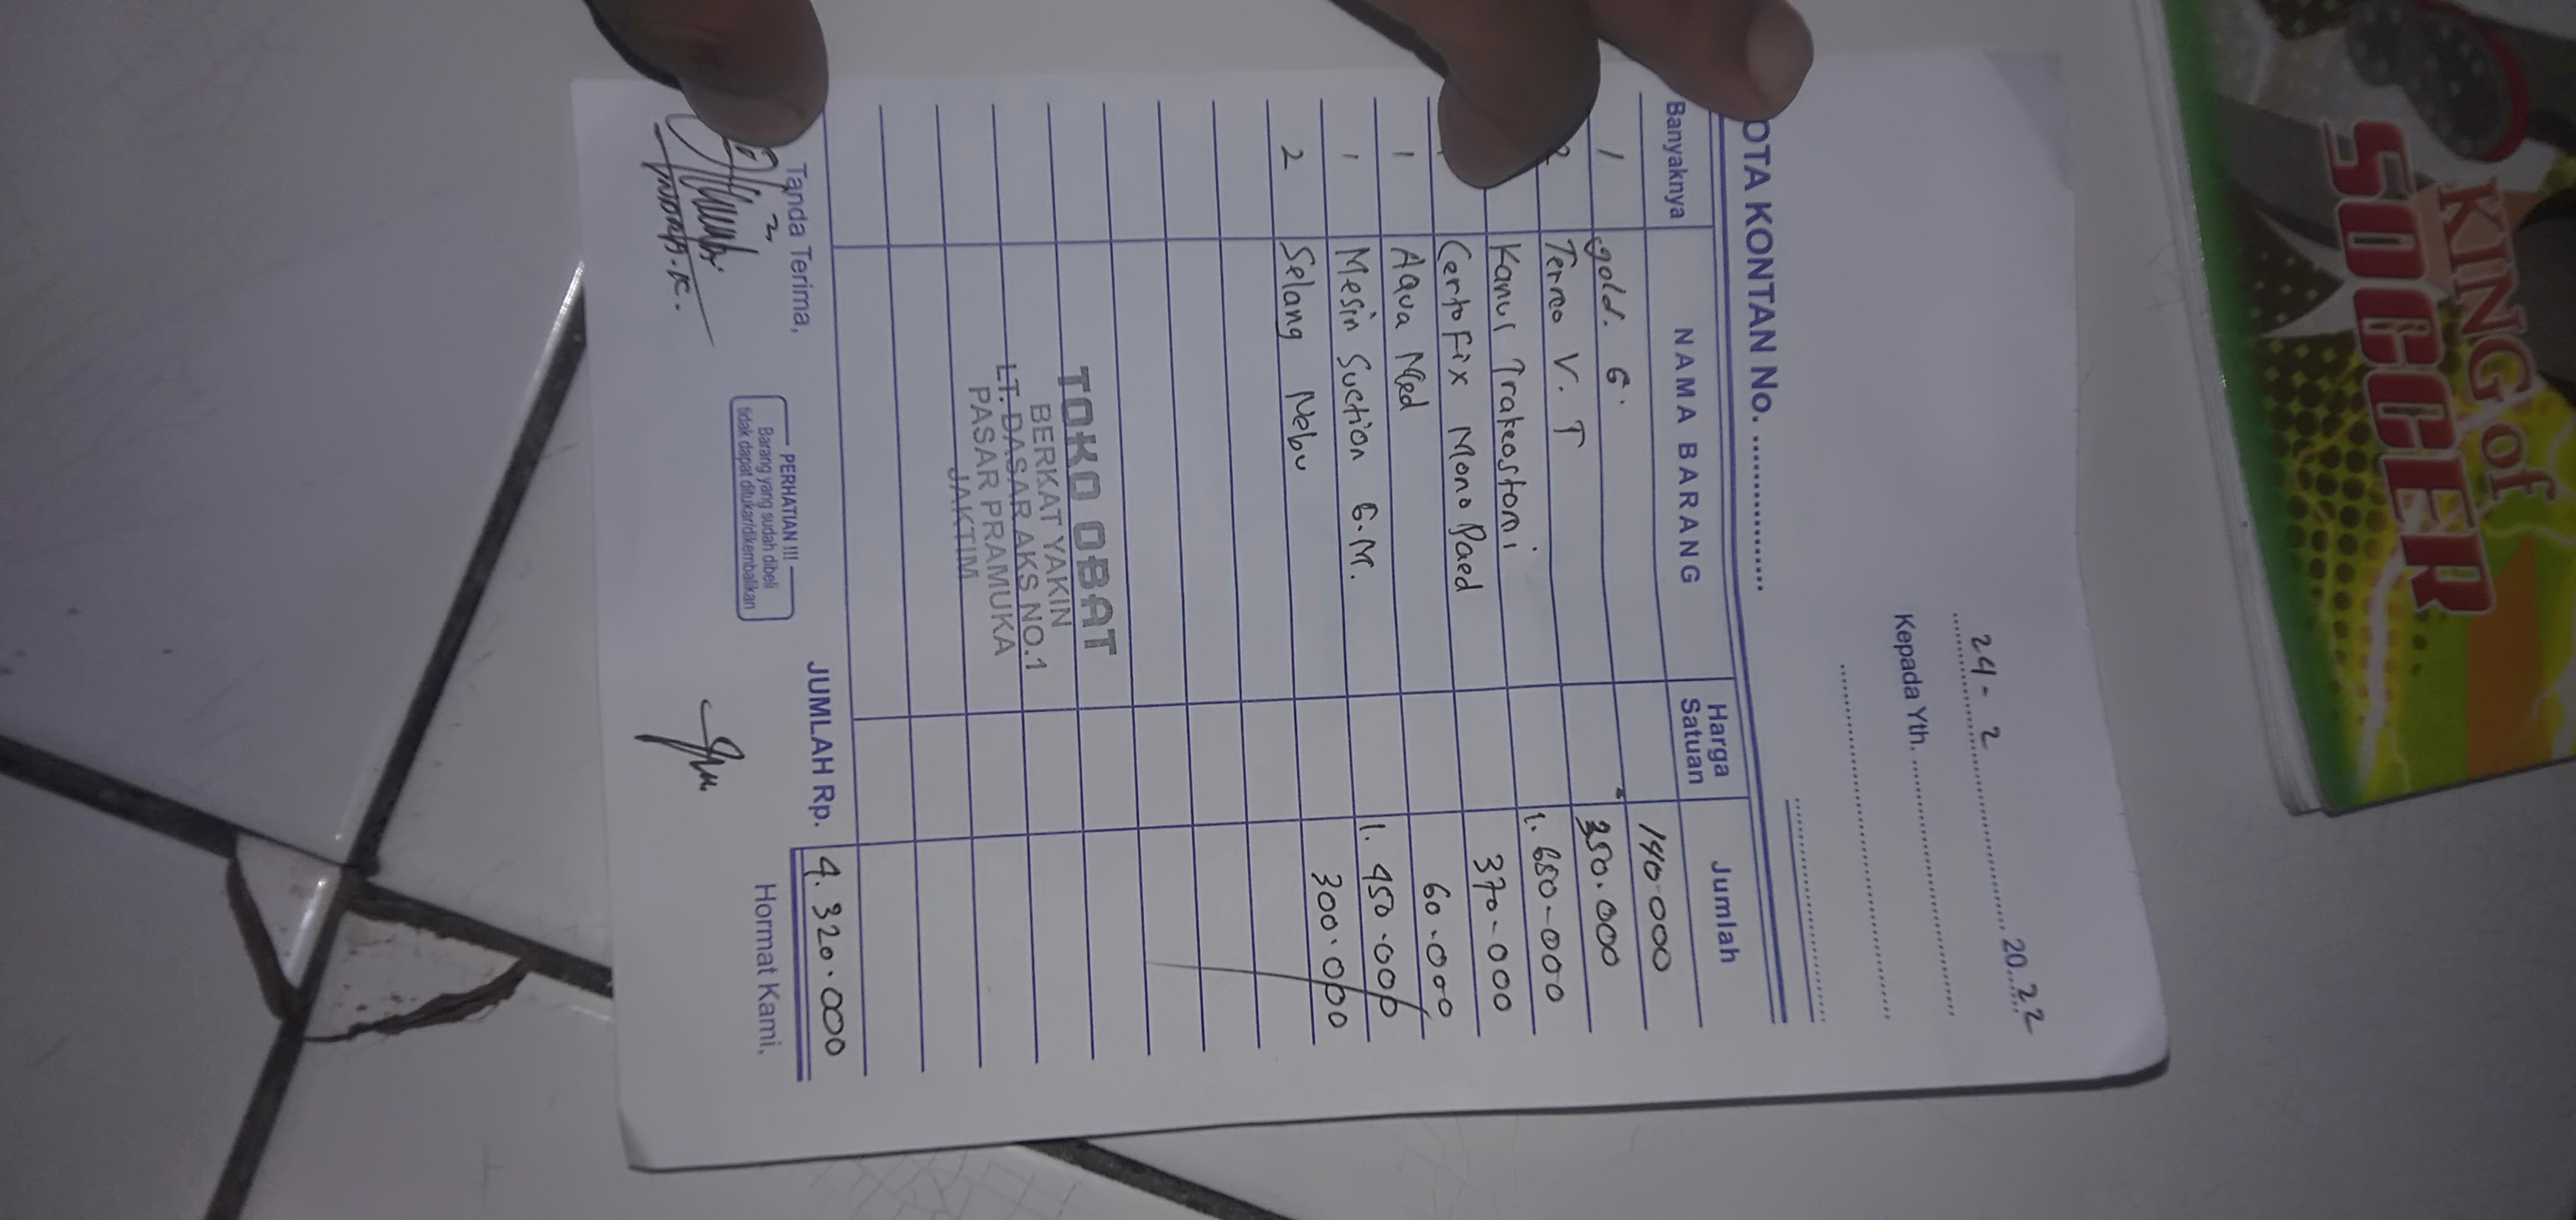 24 - 2 20 22
Kepada Yth.
OTA KONTAN No.
Banyaknya NAMA BARANG Harga Satuan Jumlah
1 gold. G. 140.000
Termo V. T 350.000
Kanul Trakeostomi 1. 650.000
Certofix Mono Paed 370.000
1 Aqua Med 60.000
1 Mesin Suction G.M. 1. 450.000
2 Selang Nebu 300.000
TOKO OBAT
BERKAT YAKIN
LT. DASAR AKS NO.1
PASAR PRAMUKA
JAKTIM
JUMLAH Rp. 4. 320.000
Tanda Terima,
PERHATIAN !!!
Barang yang sudah dibeli
tidak dapat ditukar/dikembalikan
Hormat Kami,
KING of
SOCCER